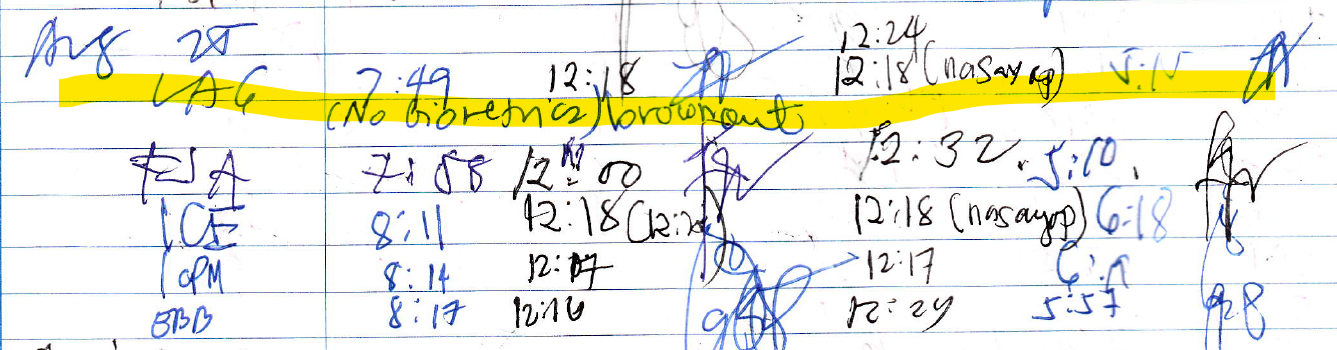 Aug 25
12:24
LAG 7:49 12:18 12:18 (nasayop) 5:15
(No biometrics) brownout
FJA 7:58 12:00 12:32 5:10
ICE 8:11 12:18 12:18 (nasayop) 6:18
OPM 8:14 12:17 12:17
BBB 8:17 12:16 12:24 5:57